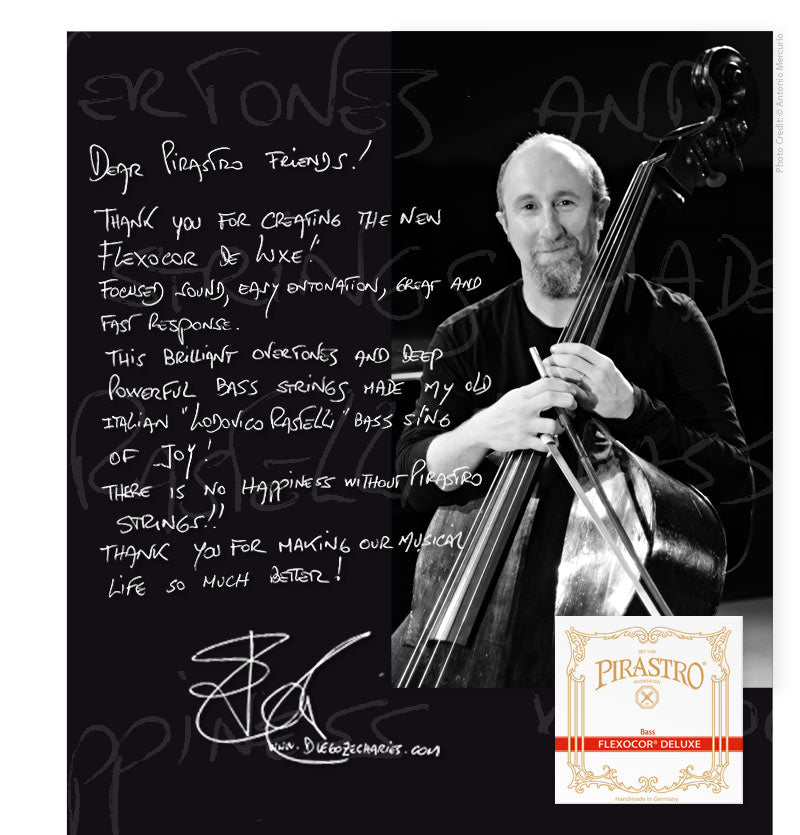 Photo Credit: © Antonio Mercurio
ERTONES AND
DEAR PIRASTRO FRIENDS!
THANK YOU FOR CREATING THE NEW
FLEXOCOR DE LUXE!
FOCUSED SOUND, EASY ENTONATION, GREAT AND
FAST RESPONSE.
THIS BRILLIANT OVERTONES AND DEEP
POWERFUL BASS STRINGS MADE MY OLD
ITALIAN "LODOVICO RASTELLI" BASS SING
OF JOY!
THERE IS NO HAPPINESS WITHOUT PIRASTRO
STRINGS!!
THANK YOU FOR MAKING OUR MUSICAL
LIFE SO MUCH BETTER!
www.DIEGOZECHARIES.COM
STRINGS MADE
RASTELLI BASS
PPINESS
PIRASTRO®
Bass
FLEXOCOR® DELUXE
Handmade in Germany